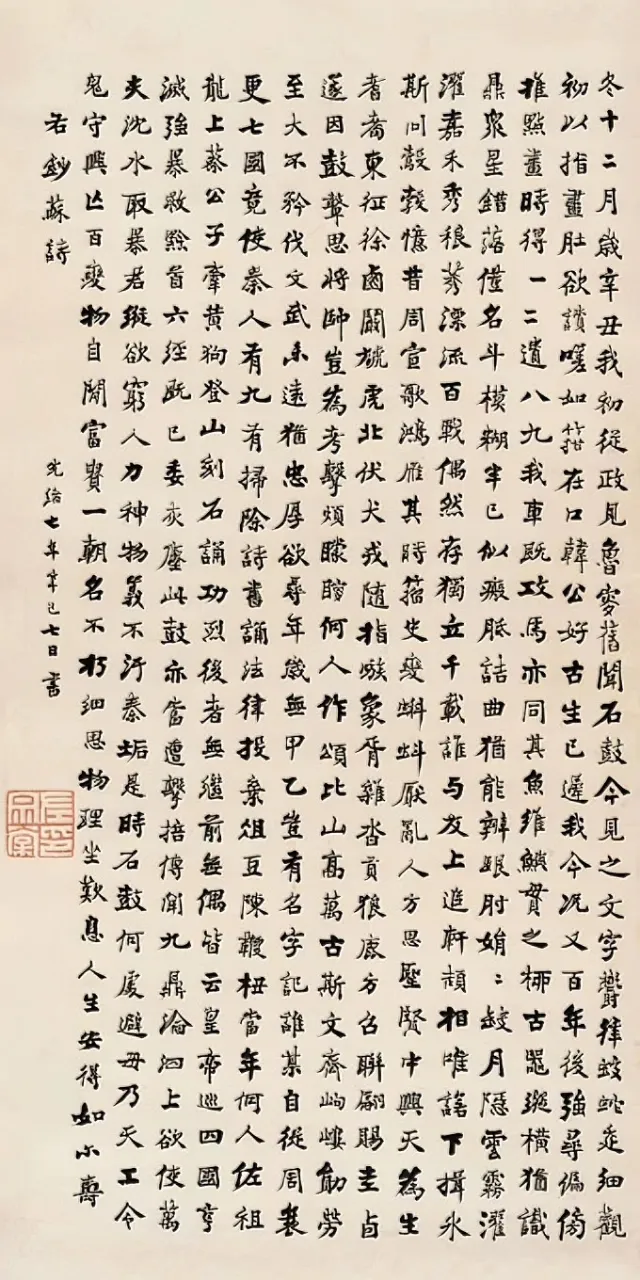 冬十二月歲辛丑我初從政見魯叟舊聞石鼓今見之文字鬱律蛟蛇走細觀
初以指畫肚欲讀嗟如箝在口韓公好古生已遲我今況又百年後強尋偏傍
推點畫時得一二遺八九我車既攻馬亦同其魚維鱮貫之柳古器縱橫猶識
鼎衆星錯落僅名斗模糊半已似瘢胝詰曲猶能辨跟肘娟〻缺月隱雲霧濯
濯嘉禾秀稂莠漂流百戰偶然存獨立千載誰与友上追軒頡相唯諾下揖氷
斯同鷇㝅憶昔周宣歌鴻雁其時籀史變蝌蚪厭亂人方思聖賢中興天為生
耆耇東征徐虜闞虓虎北伏犬戎隨指嗾象胥雜沓貢狼鹿方召聯翩賜圭卣
遂因鼓鼙思將帥豈為考擊煩矇瞍何人作頌比山高萬古斯文齊岣嶁勛勞
至大不矜伐文武未遠猶忠厚欲尋年歲無甲乙豈有名字記誰某自從周衰
更七國竟使秦人有九有掃除詩書誦法律投棄俎豆陳鞭杻當年何人佐祖
龍上蔡公子牽黃狗登山刻石誦功烈後者無繼前無偶皆云皇帝巡四國烹
滅強暴救黔首六經既已委灰塵此鼓亦當遭擊掊傳聞九鼎淪泗上欲使萬
夫沈水取暴君縱欲窮人力神物義不汙秦垢是時石鼓何處避毋乃天工令
鬼守興亡百變物自閒富貴一朝名不朽細思物理坐歎息人生安得如爾壽
右鈔蘇詩
光緒七年辛巳七日書